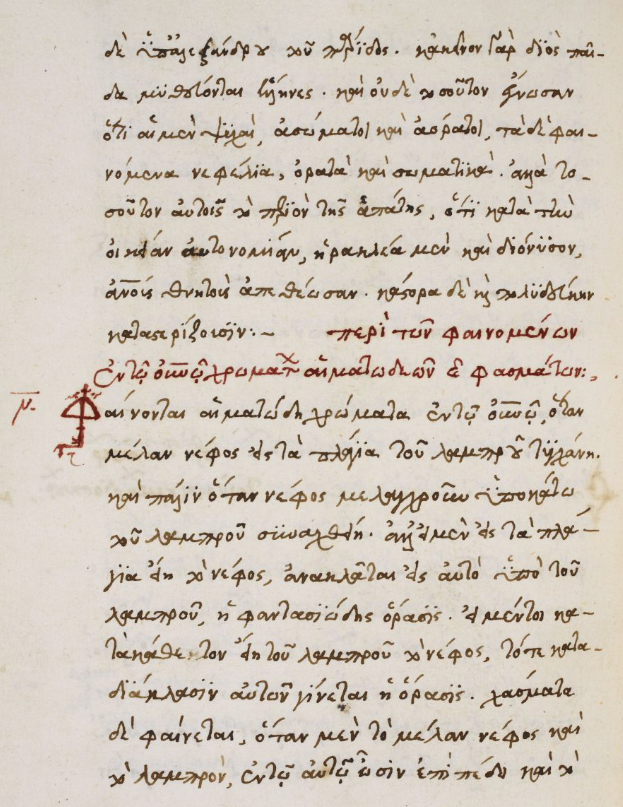 δὲ ὑπ' ἀλεξάνδρου τοῦ πριάμου. κἀκεῖνον γὰρ διὸς παῖ-
δα μυθεύονται ἕλληνες. καὶ οὐδὲ τοσοῦτον ἔγνωσαν
ὅτι αἱ μὲν ψυχαὶ, ἀσώματοι καὶ ἀόρατοι, τὰ δὲ φαι-
νόμενα νεφέλια, ὁρατὰ καὶ σωματικά. ἀλλὰ το-
σοῦτον αὐτοῖς τὸ τῆς ἀπάτης, ὅτι κατὰ τὴν
αὐτονομίαν, ἡρακλέα μὲν καὶ διόνυσον,
ἀνοὺς θνητοὺς ἀπεθέωσαν. κάστορα δὲ καὶ πολυδεύκην
καταστερίζουσιν:~ περὶ τῶν φαινομένων
ἐν τῷ οὐνῷ χρωμάτων αἱματωδῶν καὶ φασμάτων:,
μ. φαίνονται αἱματώδη χρώματα ἐν τῷ οὐνῷ, ὅταν
μέλαν νέφος εἰς τὰ πλάγια τοῦ λαμπροῦ τυγχάνῃ.
καὶ πάλιν ὅταν νέφος μελαγχροοῦν ὑποκάτω
τοῦ λαμπροῦ συναχθῇ. ἀλλ' εἰ μὲν εἰς τὰ πλά-
για εἴη τὸ νέφος, ἀνακλᾶται εἰς αὐτὸ ὑπὸ τοῦ
λαμπροῦ, ἡ φαντασιώδης ὅρασις. εἰ μέντοι κα-
τὰ κάθετον εἴη τοῦ λαμπροῦ τὸ νέφος, τότε κατα-
διάκλασιν αὐτῶν γίνεται ἡ ὅρασις. χάσματα
δὲ φαίνεται, ὅταν μὲν τὸ μέλαν νέφος καὶ
τὸ λαμπρὸν, ἐν τῷ αὐτῷ ὦσιν ἐπιπέδῳ καὶ τὸ